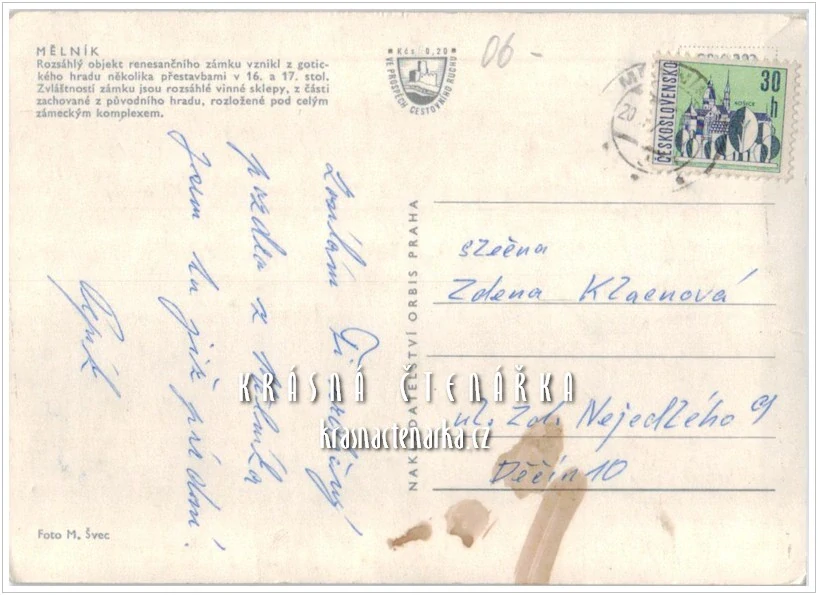 MĚLNÍK
Rozsáhlý objekt renesančního zámku vznikl z gotic-
kého hradu několika přestavbami v 16. a 17. stol.
Zvláštností zámku jsou rozsáhlé vinné sklepy, z části
zachované z původního hradu, rozložené pod celým
zámeckým komplexem.
Kčs 0,20
VE PROSPĚCH CESTOVNÍHO RUCHU
06-
ČESKOSLOVENSKO
30
h
KOŠICE
20
Zasílám Ti srdečný
pozdrav z Mělníka
Jsem tu již
Pepík
NAKLADATELSTVÍ ORBIS PRAHA
slečna
Zdena Klaenová
ul. Zd. Nejedlého 9
Děčín 10
KRÁSNÁ ČTENÁŘKA
krasnactenarka.cz
Foto M. Švec